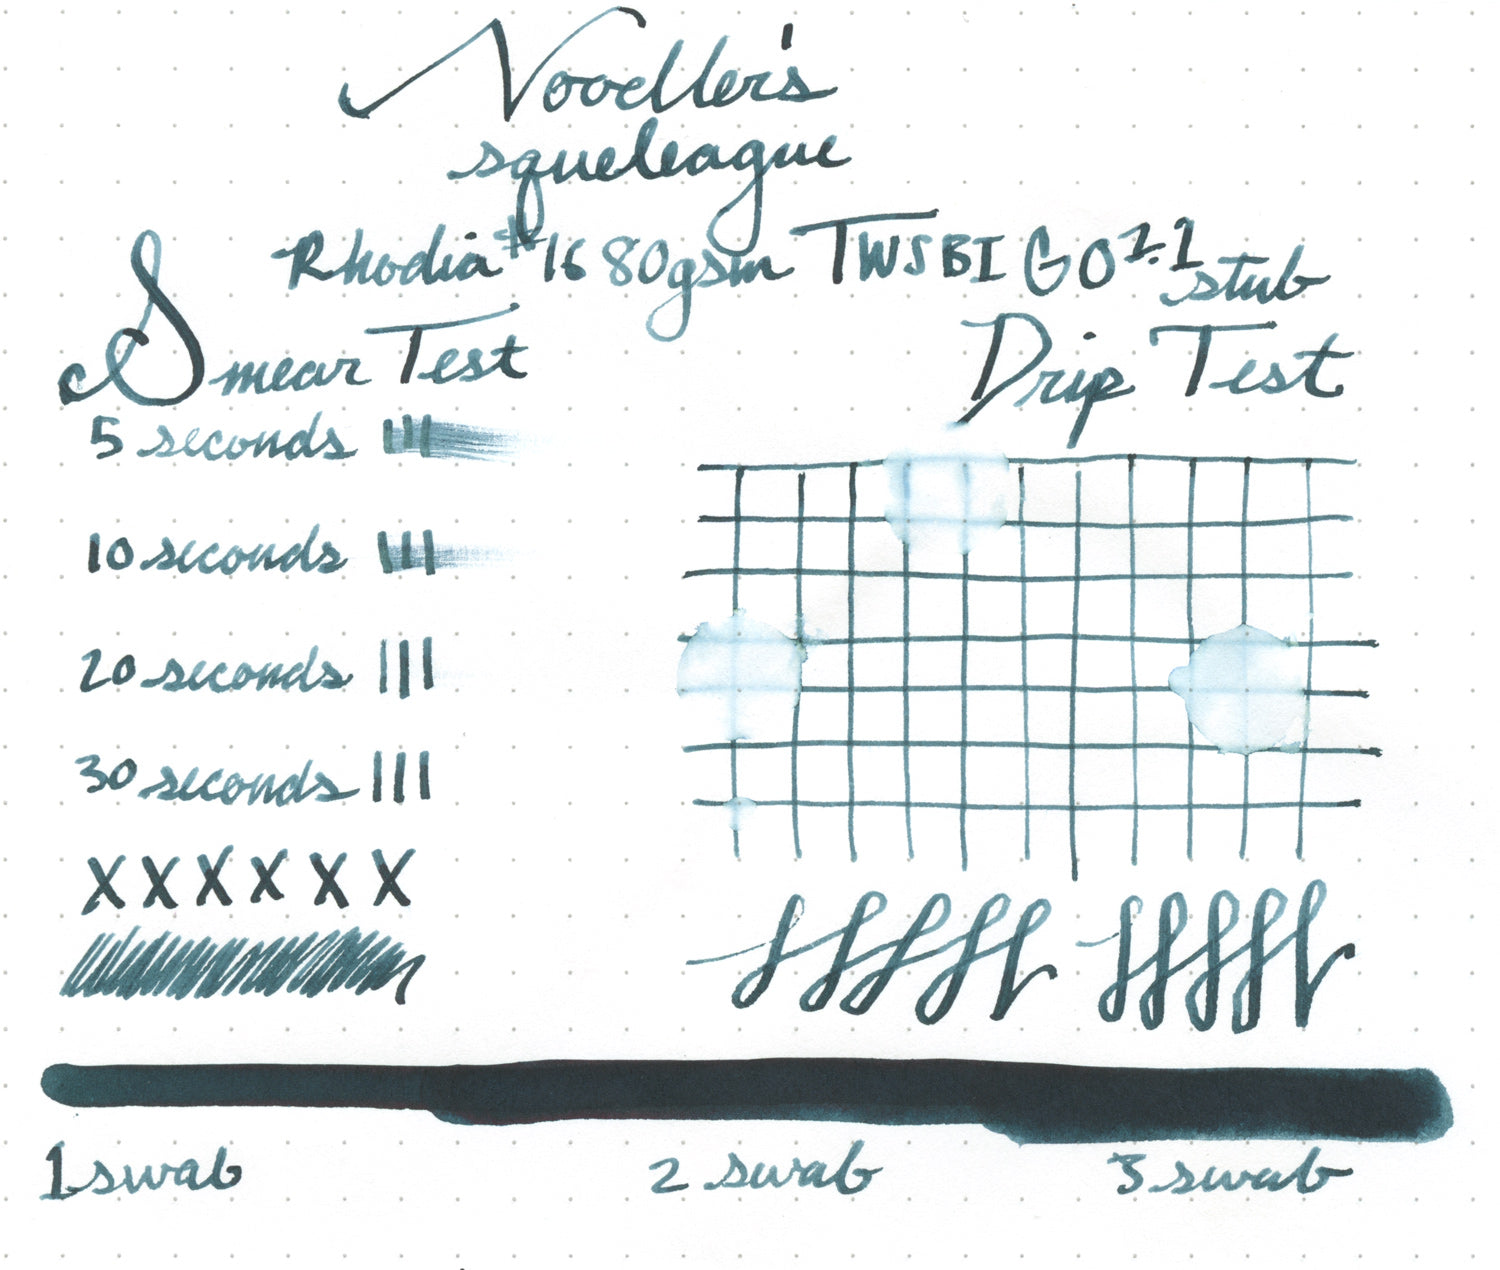 Noodler's
squeleague
Rhodia #16 80gsm TWSBI GO 1.1 stub
Smear Test
Drip Test
5 seconds
10 seconds
20 seconds
30 seconds
X X X X X X
1 swab
2 swab
3 swab